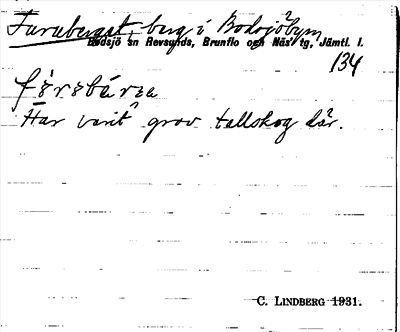 Furuberget, berg i Bodsjöbyn
Bodsjö sn Revsunds, Brunflo och Näs tg, Jämtl. l.
134
Har varit grov tallskog där.
C. LINDBERG 1931.